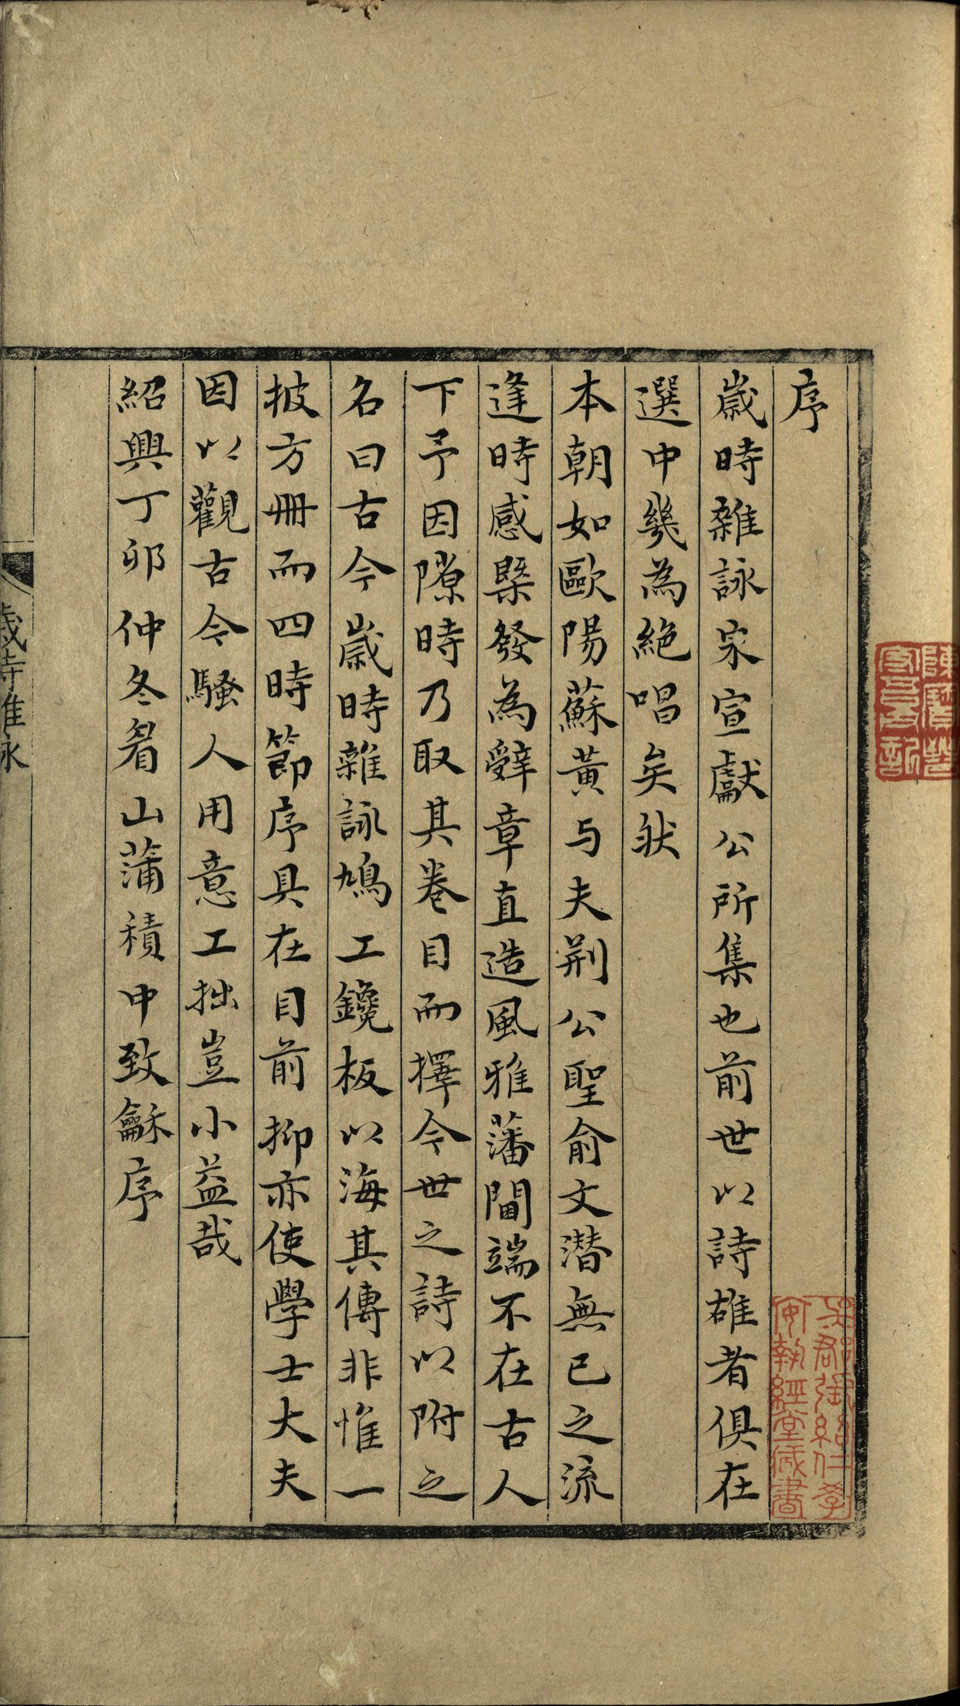 序
歲時雜詠宋宣獻公所集也前世以詩雄者俱在
選中幾為絕唱矣然
本朝如歐陽蘇黃与夫荆公聖俞文潛無已之流
逢時感槩發為辭章直造風雅藩閫端不在古人
下予因隙時乃取其卷目而擇今世之詩以附之
名曰古今歲時雜詠鳩工鑱板以海其傳非惟一
披方冊而四時節序具在目前抑亦使學士大夫
因以觀古今騷人用意工拙豈小益哉
紹興丁夘仲冬眉山蒲積中致龢序
歲時雜詠
吳郡張紹仁學
安執經堂藏書